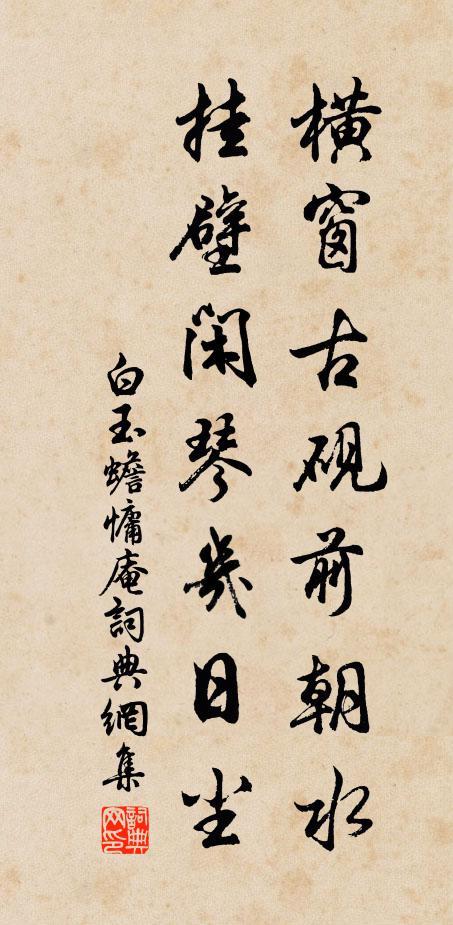 橫窗古硯前朝水
挂壁閑琴幾日尘
白玉蟾慵庵詞典網集
詞典網印